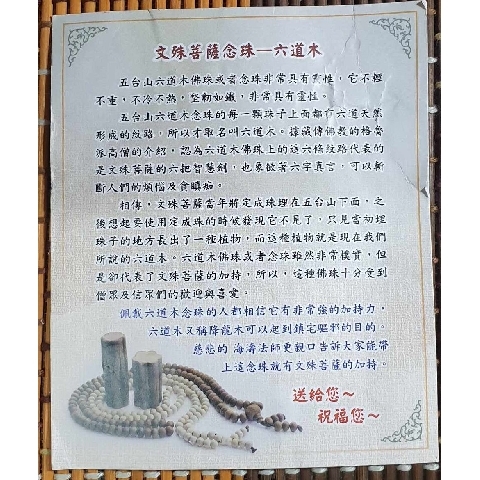 文殊菩薩念珠—六道木
五台山六道木佛珠或者念珠非常具有靈性，它不輕
不重，不冷不熱，堅韌如鐵，非常具有靈性。
五台山六道木念珠的每一顆珠子上面都有六道天然
形成的紋路，所以才取名叫六道木。據藏傳佛教的格魯
派高僧的介紹，認為六道木佛珠上的這六條紋路代表的
是文殊菩薩的六把智慧劍，也象徵著六字真言，可以斬
斷人們的煩惱及貪瞋痴。
相傳，文殊菩薩當年將定成珠埋在五台山下面，之
後想起要使用定成珠的時候發現它不見了，只見當初埋
珠子的地方長出了一種植物，而這種植物就是現在我們
所說的六道木。六道木佛珠或者念珠雖然非常樸實，但
是卻代表了文殊菩薩的加持，所以，這種佛珠十分受到
僧眾及信眾們的歡迎與喜愛。
佩戴六道木念珠的人都相信它有非常強的加持力，
六道木又稱降龍木可以起到鎮宅驅邪的目的。
慈悲的 海濤法師更親口告訴大家能帶
上這念珠就有文殊菩薩的加持。
送給您～
祝福您～